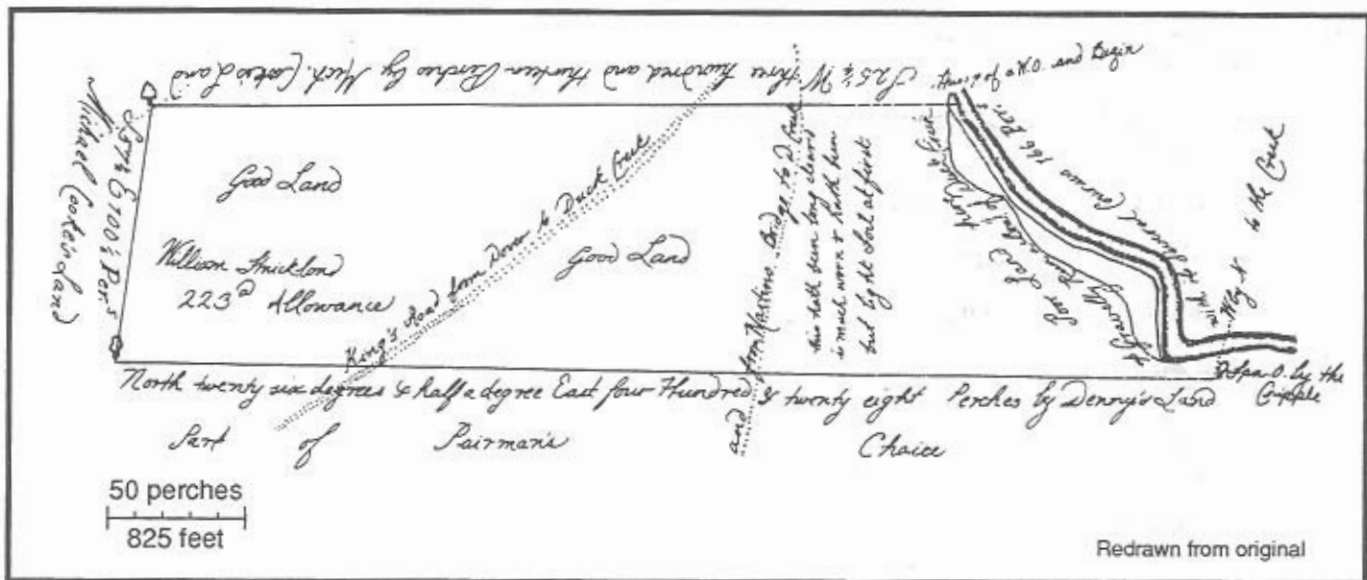 S 25¼ W three hundred and thirteen Perches by Mich. Cooke's Land
S 57½ E 100½ Pers
Michael Cooke's Land
Good Land
William Strickland
223ᵃ Allowance
King's Road from Dover to Duck Creek
Good Land
and from Hastins Bridge to D. Creek
this hath been long cleard
is much worn & hath been
but light Soil at first
Poor Land
& Gravelly
W. O. and Begin
with the several Courses 166 Per.
to the Creek
a Spa. O. by the
Cripple
North twenty six degrees & half a degree East four Hundred & twenty eight Perches by Denny's Land
Part of Pairman's Choice
50 perches
825 feet
Redrawn from original